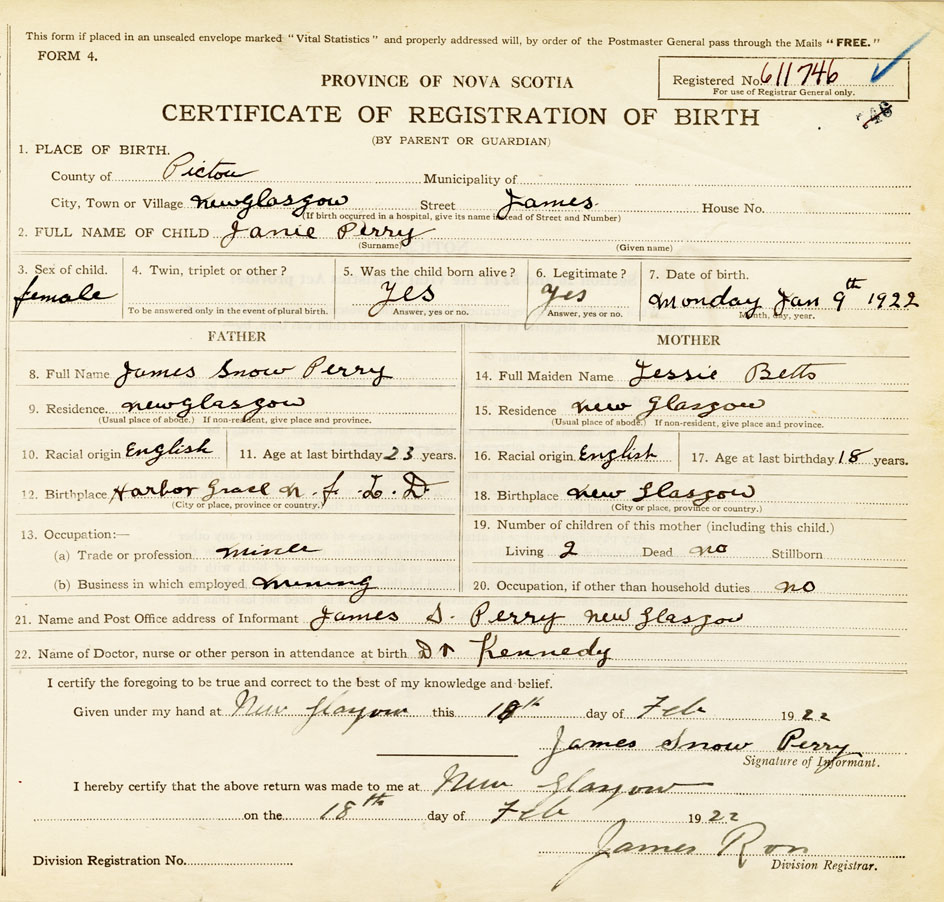 This form if placed in an unsealed envelope marked "Vital Statistics" and properly addressed will, by order of the Postmaster General pass through the Mails "FREE."
FORM 4.
Registered No. 611746
For use of Registrar General only.
746
PROVINCE OF NOVA SCOTIA
CERTIFICATE OF REGISTRATION OF BIRTH
(BY PARENT OR GUARDIAN)
1. PLACE OF BIRTH.
County of Pictou Municipality of
City, Town or Village New Glasgow Street James House No.
(If birth occurred in a hospital, give its name instead of Street and Number)
2. FULL NAME OF CHILD Janie Perry
(Surname) (Given name)
3. Sex of child. 4. Twin, triplet or other? 5. Was the child born alive? 6. Legitimate? 7. Date of birth.
female yes yes Monday Jan 9th 1922
To be answered only in the event of plural birth. Answer, yes or no. Answer, yes or no. Month, day, year.
FATHER MOTHER
8. Full Name James Snow Perry 14. Full Maiden Name Jessie Betts
9. Residence. New Glasgow 15. Residence New Glasgow
(Usual place of abode.) If non-resident, give place and province. (Usual place of abode.) If non-resident, give place and province.
10. Racial origin English 11. Age at last birthday 23 years. 16. Racial origin English 17. Age at last birthday 18 years.
12. Birthplace Harbor Grace N. f. L. D 18. Birthplace New Glasgow
(City or place, province or country.) (City or place, province or country.)
13. Occupation:— 19. Number of children of this mother (including this child.)
(a) Trade or profession miner Living 2 Dead no Stillborn
(b) Business in which employed mining 20. Occupation, if other than household duties no
21. Name and Post Office address of Informant James S. Perry New Glasgow
22. Name of Doctor, nurse or other person in attendance at birth Dr Kennedy
I certify the foregoing to be true and correct to the best of my knowledge and belief.
Given under my hand at New Glasgow this 18th day of Feb 1922
James Snow Perry
Signature of Informant.
I hereby certify that the above return was made to me at New Glasgow
on the 18th day of Feb 1922
James
Division Registration No. Division Registrar.